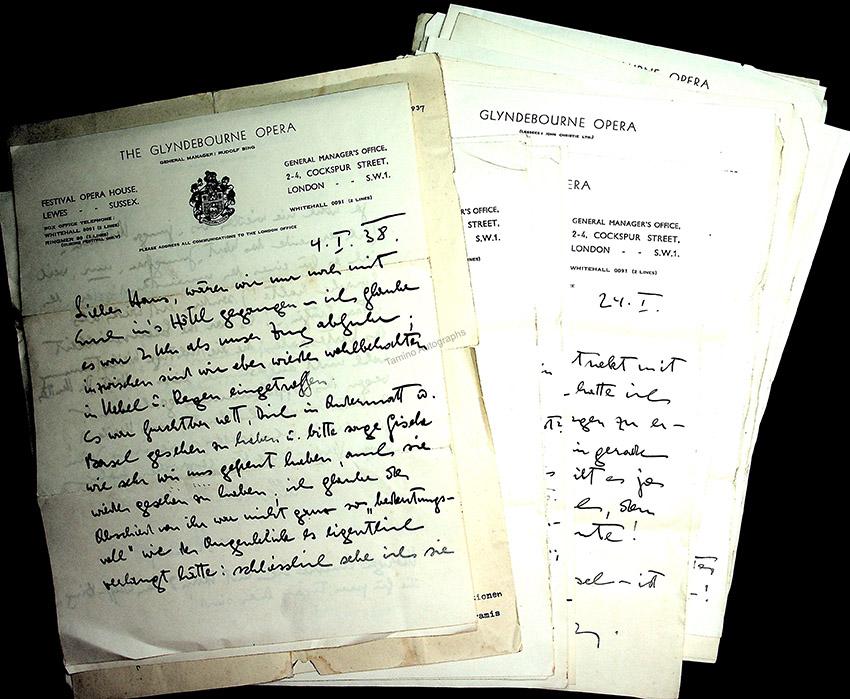 THE GLYNDEBOURNE OPERA
GENERAL MANAGER: RUDOLF BING
FESTIVAL OPERA HOUSE,
LEWES - - SUSSEX.
BOX OFFICE TELEPHONE:
WHITEHALL 0091 (2 LINES)
RINGMER 80 (2 LINES)
(DURING FESTIVAL ONLY)
GENERAL MANAGER'S OFFICE,
2-4, COCKSPUR STREET,
LONDON - - S.W.1.
WHITEHALL 0091 (2 LINES)
PLEASE ADDRESS ALL COMMUNICATIONS TO THE LONDON OFFICE
4. I. 38.
Lieber Hans, wären wir nur noch mit
Euch in's Hôtel gegangen – ich glaube
es war 2 Uhr als unser Zug abfuhr;
inzwischen sind wir eben wieder wohlbehalten
in Nebel u. Regen eingetroffen.
Es war furchtbar nett, Dich in Andermatt u.
Basel gesehen zu haben u. bitte sage Gisela
wie sehr wir uns gefreut haben, auch sie
wieder gesehen zu haben; ich glaube der
Abschied von ihr war nicht ganz so „bedeutungs-
voll" wie der Augenblick es eigentlich
verlangt hätte: schliesslich sehe ich sie
937
Tamino Autographs
ktionen
ramis
GLYNDEBOURNE OPERA
(LESSEES: JOHN CHRISTIE LTD.)
R'S OFFICE,
STREET,
S.W.1.
ERA
GENERAL MANAGER'S OFFICE,
2-4, COCKSPUR STREET,
LONDON - - S.W.1.
WHITEHALL 0091 (2 LINES)
24. I.
trekt mit
hatte ich
gen zu er-
in gerade
ilt es ja
es, dem
nte!
sel – ist
URNE OPERA